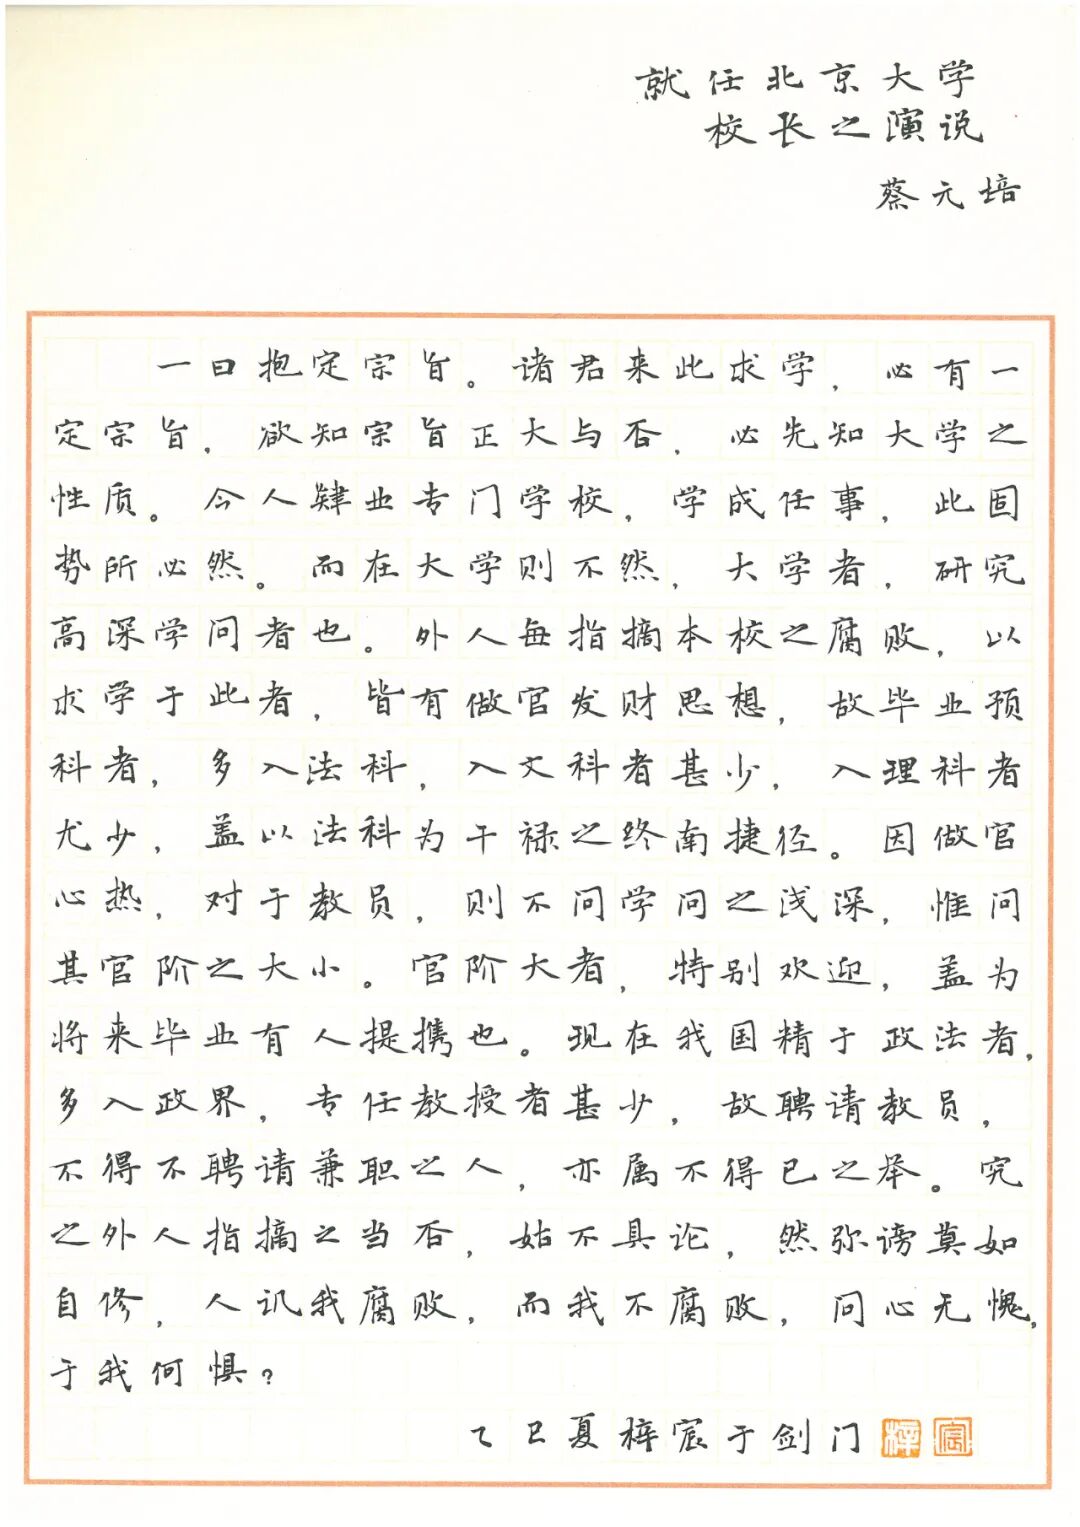 就任北京大学
校长之演说
蔡元培
一曰抱定宗旨。诸君来此求学，必有一
定宗旨，欲知宗旨正大与否，必先知大学之
性质。今人肄业专门学校，学成任事，此固
势所必然。而在大学则不然，大学者，研究
高深学问者也。外人每指摘本校之腐败，以
求学于此者，皆有做官发财思想，故毕业预
科者，多入法科，入文科者甚少，入理科者
尤少，盖以法科为干禄之终南捷径。因做官
心热，对于教员，则不问学问之浅深，惟问
其官阶之大小。官阶大者，特别欢迎，盖为
将来毕业有人提携也。现在我国精于政法者，
多入政界，专任教授者甚少，故聘请教员，
不得不聘请兼职之人，亦属不得已之举。究
之外人指摘之当否，姑不具论，然弥谤莫如
自修，人讥我腐败，而我不腐败，问心无愧，
于我何惧？
乙巳夏梓宸于剑门
梓 宸